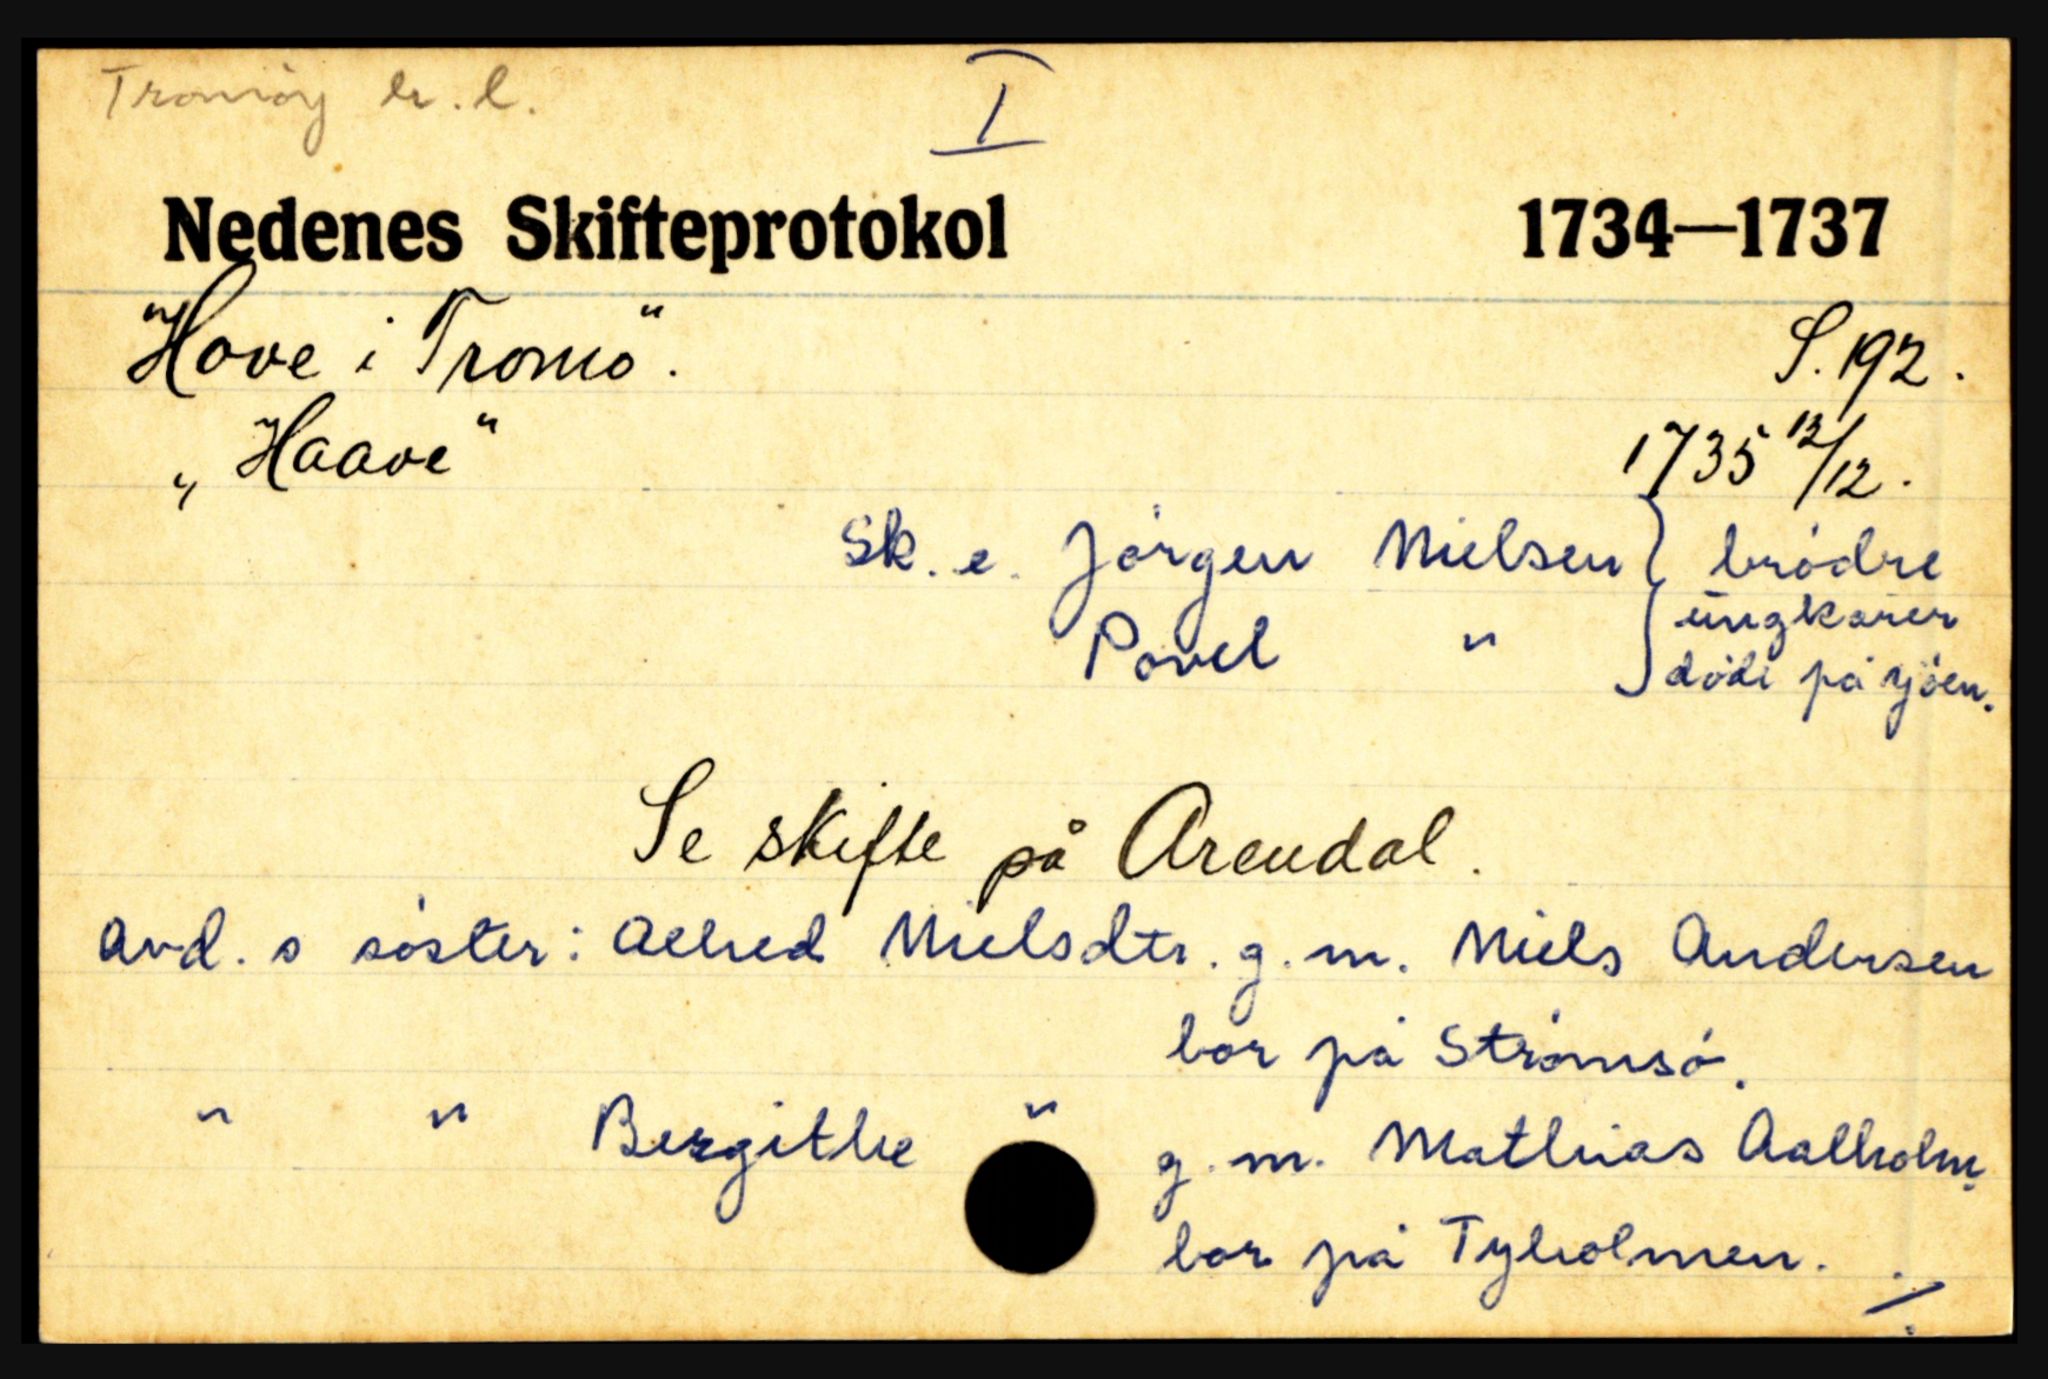 Tromöy h.l.
I
Nedenes Skifteprotokol 1734—1737
"Hove i Tromö". S. 192.
„Haave" 1735 12/12.
Sk. e. Jörgen Nielsen } brödre
Povel " ungkarer
döde på sjöen.
Se skifte på Arendal.
avd. s söster: Aelhed Nielsdtr. g.m. Niels Andersen
bor på Strömsö.
" " Bergithe " g.m. Mathias Aalholm,
bor på Tyholmen. ./.